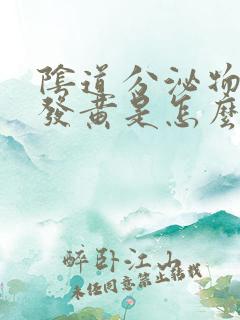 陰道分泌物
發黃是怎麼
醉卧江山
未任同意禁止轉載